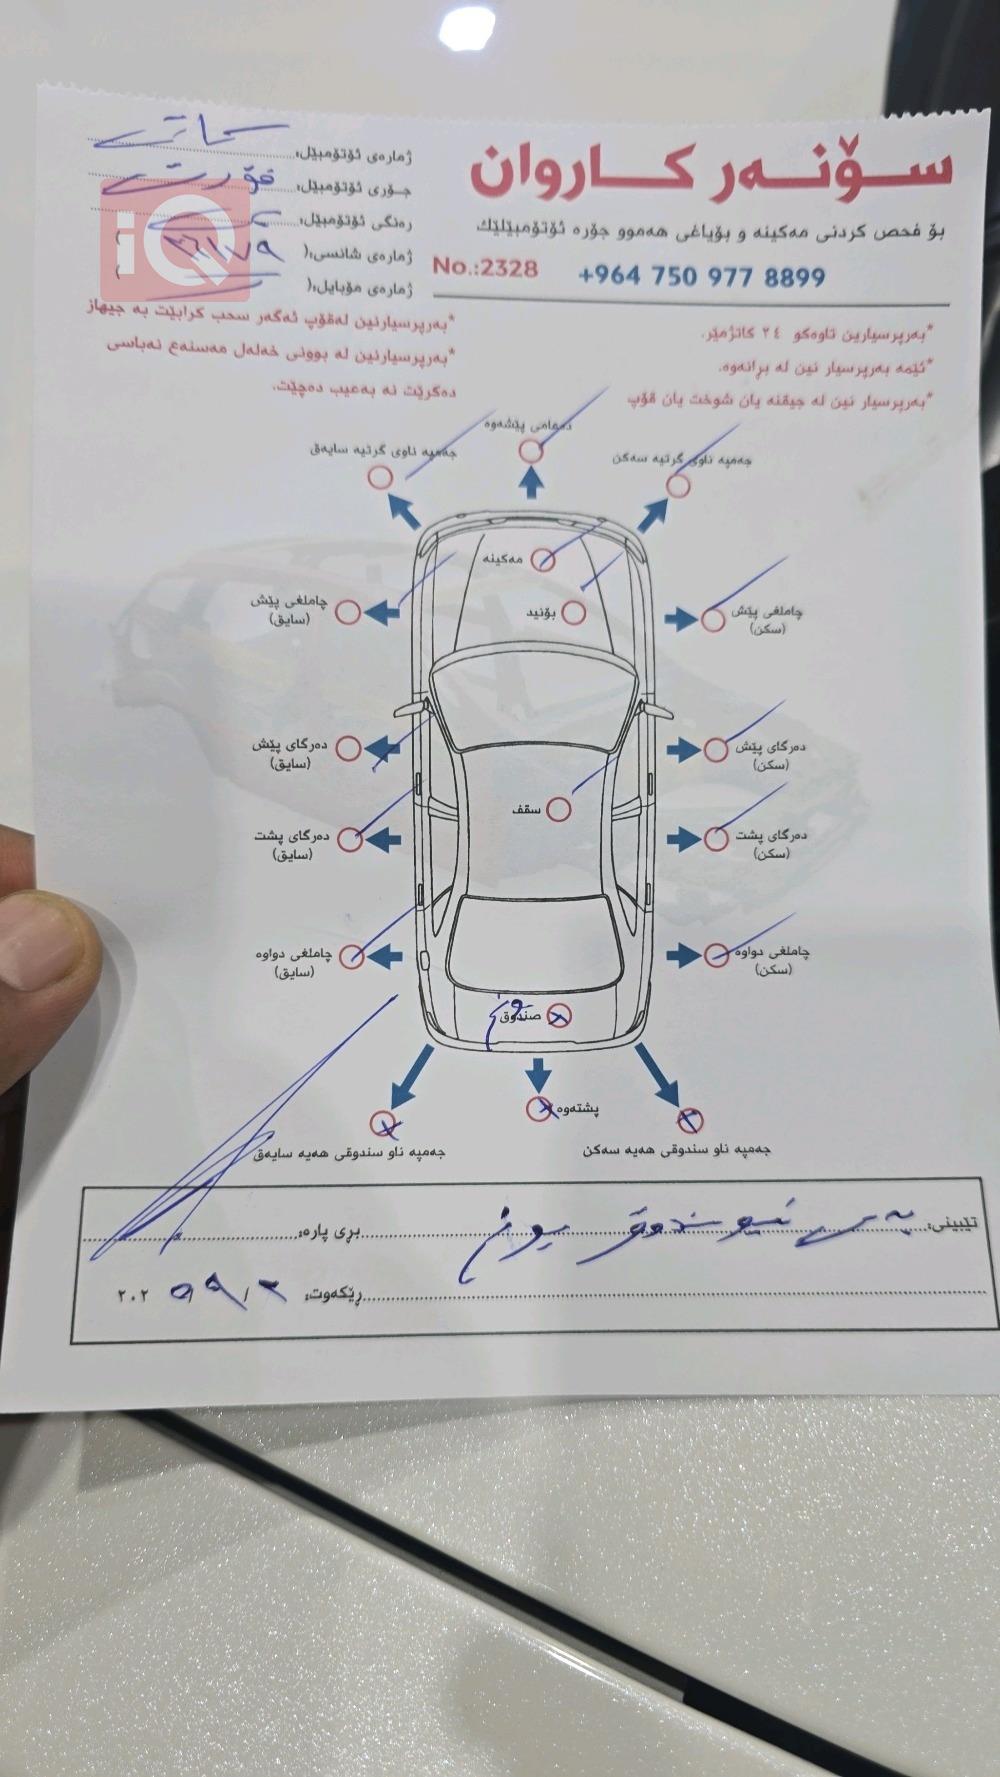 سۆنەر کاروان
بۆ فحص کردنی مەکینە و بۆیاغی هەموو جۆرە ئۆتۆمبێلێك
No.:2328 +964 750 977 8899
ژمارەی ئۆتۆمبێل:
جۆری ئۆتۆمبێل: فۆرت
ڕەنگی ئۆتۆمبێل:
ژمارەی شانسی:( )
ژمارەی مۆبایل:( )
iQ
*بەرپرسیارین تاوەکو ٢٤ کاتژمێر.
*ئێمە بەرپرسیار نین لە بڕانەوە.
*بەرپرسیار نین لە جیقنە یان شوخت یان قۆپ
*بەرپرسیارنین لەقۆپ ئەگەر سحب کرابێت بە جیهاز
*بەرپرسیارنین لە بوونی خەلەل مەسنەع نەباسی
دەکرێت نە بەعیب دەچێت.
دەعامی پێشەوە
جەمپە ناوی گرتیە سایەق
جەمپە ناوی گرتیە سەکن
مەکینە
بۆنید
چاملغی پێش
(سایق)
چاملغی پێش
(سکن)
دەرگای پێش
(سایق)
دەرگای پێش
(سکن)
سقف
دەرگای پشت
(سایق)
دەرگای پشت
(سکن)
چاملغی دواوە
(سایق)
چاملغی دواوە
(سکن)
صندوق
پشتەوە
جەمپە ناو سندوقی هەیە سایەق
جەمپە ناو سندوقی هەیە سەکن
تێبینی:
بڕی پارە:
ڕێکەوت:
٢٠٢